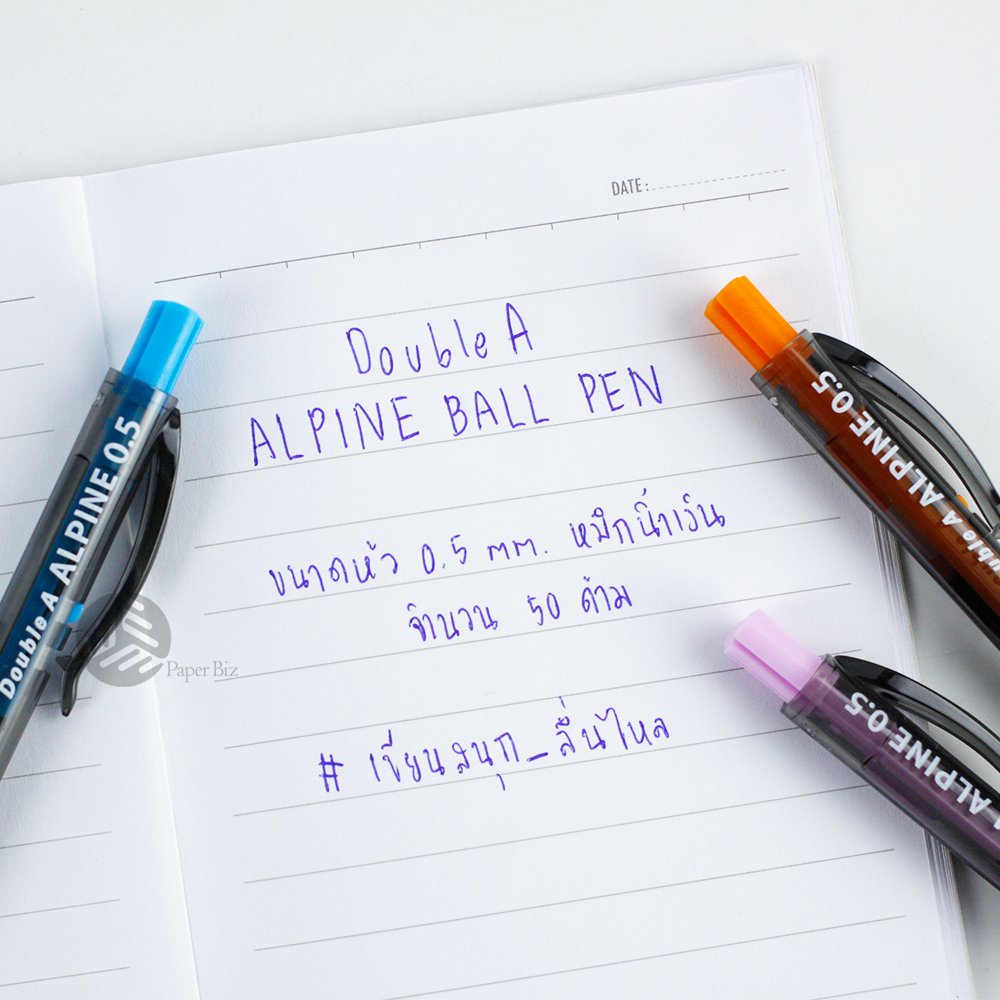 DATE:
Double A
ALPINE BALL PEN
ขนาดหัว 0.5 mm. หมึกน้ำเงิน
จำนวน 50 ด้าม
# เขียนสนุก_ลื่นไหล
Double A ALPINE 0.5
Double A ALPINE 0.5
A ALPINE 0.5
Paper Biz